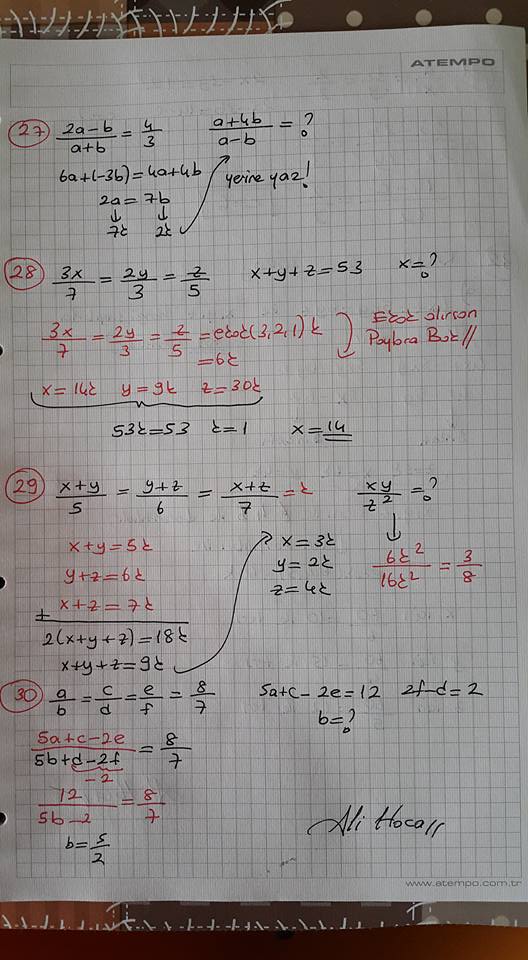 ATEMPO
27 (2a-b)/(a+b) = 4/3 (a+4b)/(a-b) = ?
6a+(-3b)=4a+4b yerine yaz!
2a = 7b
↓ ↓
7k 2k
28 3x/7 = 2y/3 = z/5 x+y+z=53 x=?
3x/7 = 2y/3 = z/5 = ekok(3,2,1)k Ekok alırsan
=6k Paylara Bak//
x=14k y=9k z=30k
53k=53 k=1 x=14
29 (x+y)/5 = (y+z)/6 = (x+z)/7 = k xy/z² = ?
x+y=5k x=3k ↓
y+z=6k y=2k 6k²/16k² = 3/8
+ x+z=7k z=4k
2(x+y+z)=18k
x+y+z=9k
30 a/b = c/d = e/f = 8/7 5a+c-2e=12 2f-d=2
b=?
(5a+c-2e)/(5b+d-2f) = 8/7
-2
12/(5b-2) = 8/7
b=5/2
Ali Hoca
www.atempo.com.tr